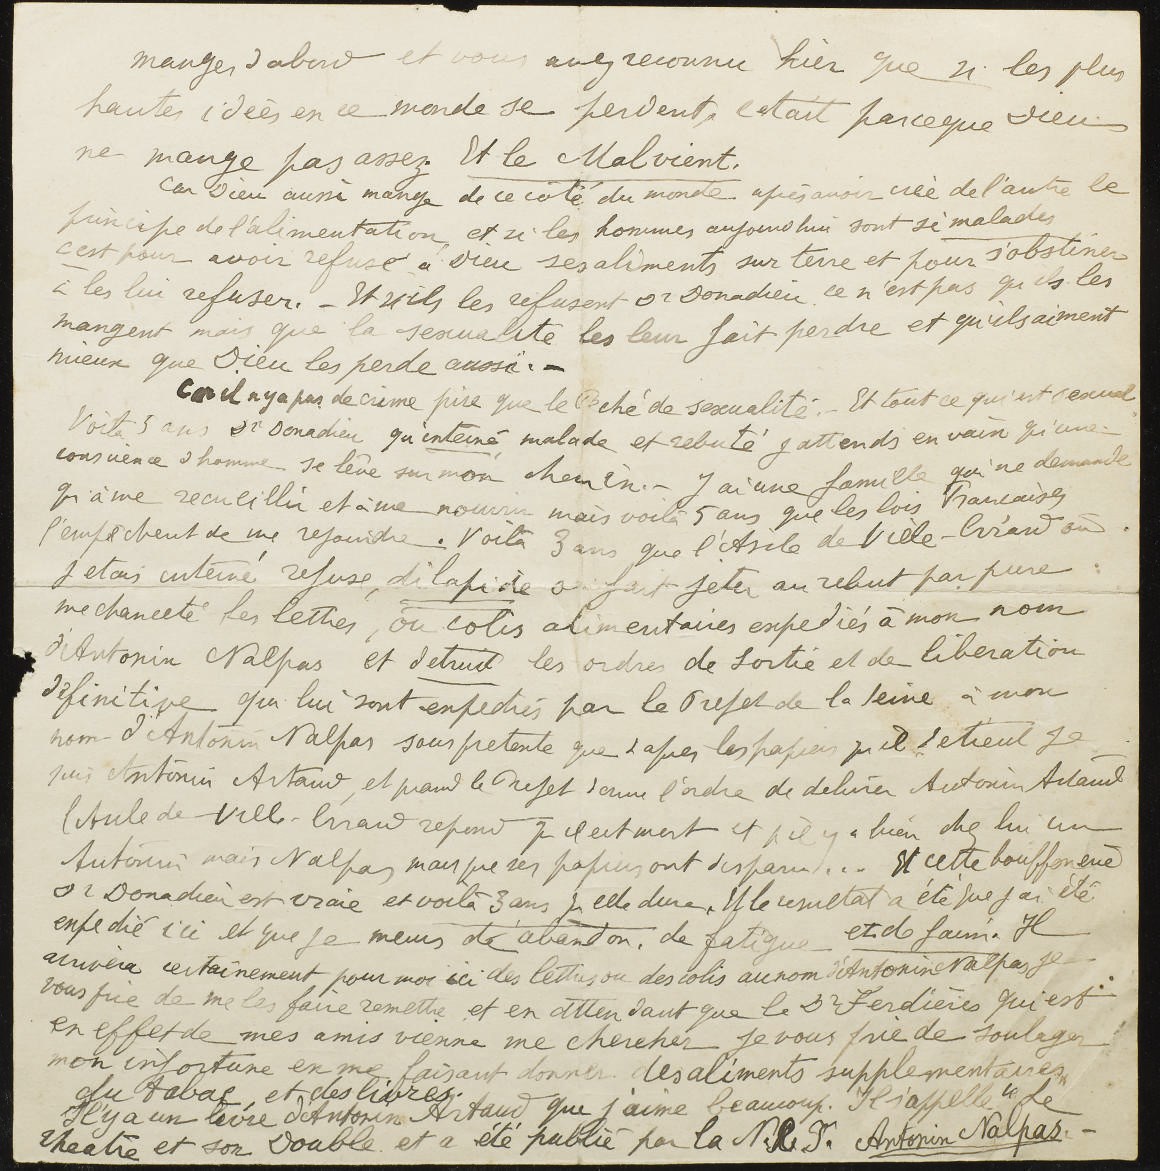 manger d'abord et vous avez reconnu hier que si les plus
hautes idées en ce monde se perdent, c'etait parceque Dieu
ne mange pas assez. Et le Mal vient.
Car Dieu aussi mange de ce côté du monde après avoir créé de l'autre le
principe de l'alimentation, et si les hommes aujourd'hui sont si malades
c'est pour avoir refusé à Dieu ses aliments sur terre et pour s'obstiner
à les lui refuser. – Et s'ils les refusent Dr Donadieu ce n'est pas qu'ils les
mangent mais que la sexualité les leur fait perdre et qu'ils aiment
mieux que Dieu les perde aussi. –
Car il n'y a pas de crime pire que le Péché de sexualité. – Et tout ce qui est sexuel
Voità 5 ans Dr Donadieu qu'interné malade et rebuté j'attends en vain qu'une
conscience d'homme se lève sur mon chemin. – J'ai une famille qui ne demande
qu'à me recueillir et à me nourrir mais voilà 5 ans que les lois Françaises
l'empêchent de me rejoindre. Voilà 3 ans que l'Asile de Ville-Evrard où
j'etais interné refuse, dilapide ou fait jeter au rebut par pure
mechanceté les lettres, ou colis alimentaires expediés à mon nom
d'Antonin Nalpas et detruit les ordres de sortie et de liberation
définitive qui lui sont expediés par le Prefet de la Seine à mon
nom d'Antonin Nalpas sous pretexte que d'apres les papiers qu'il detient je
suis Antonin Artaud, et quand le Prefet donne l'ordre de delivrer Antonin Artaud
l'Asile de Ville-Evrard repond qu'il est mort et qu'il y a bien chez lui un
Antonin mais Nalpas mais que ses papiers ont disparu... Et cette bouffonnerie
Dr Donadieu est vraie et voilà 3 ans qu'elle dure. Et le resultat a été que j'ai été
expedié ici et que je meurs d'abandon, de fatigue et de faim. Il
arrivera certainement pour moi ici des lettres ou des colis au nom d'Antonin Nalpas je
vous prie de me les faire remettre et en attendant que le Dr Ferdières qui est
en effet de mes amis vienne me chercher je vous prie de soulager
mon infortune en me faisant donner des aliments supplementaires,
du tabac, et des livres.
Il y a un livre d'Antonin Artaud que j'aime beaucoup. Il s'appelle "Le
Theatre et son Double" et a été publié par la N.R.F. Antonin Nalpas. –